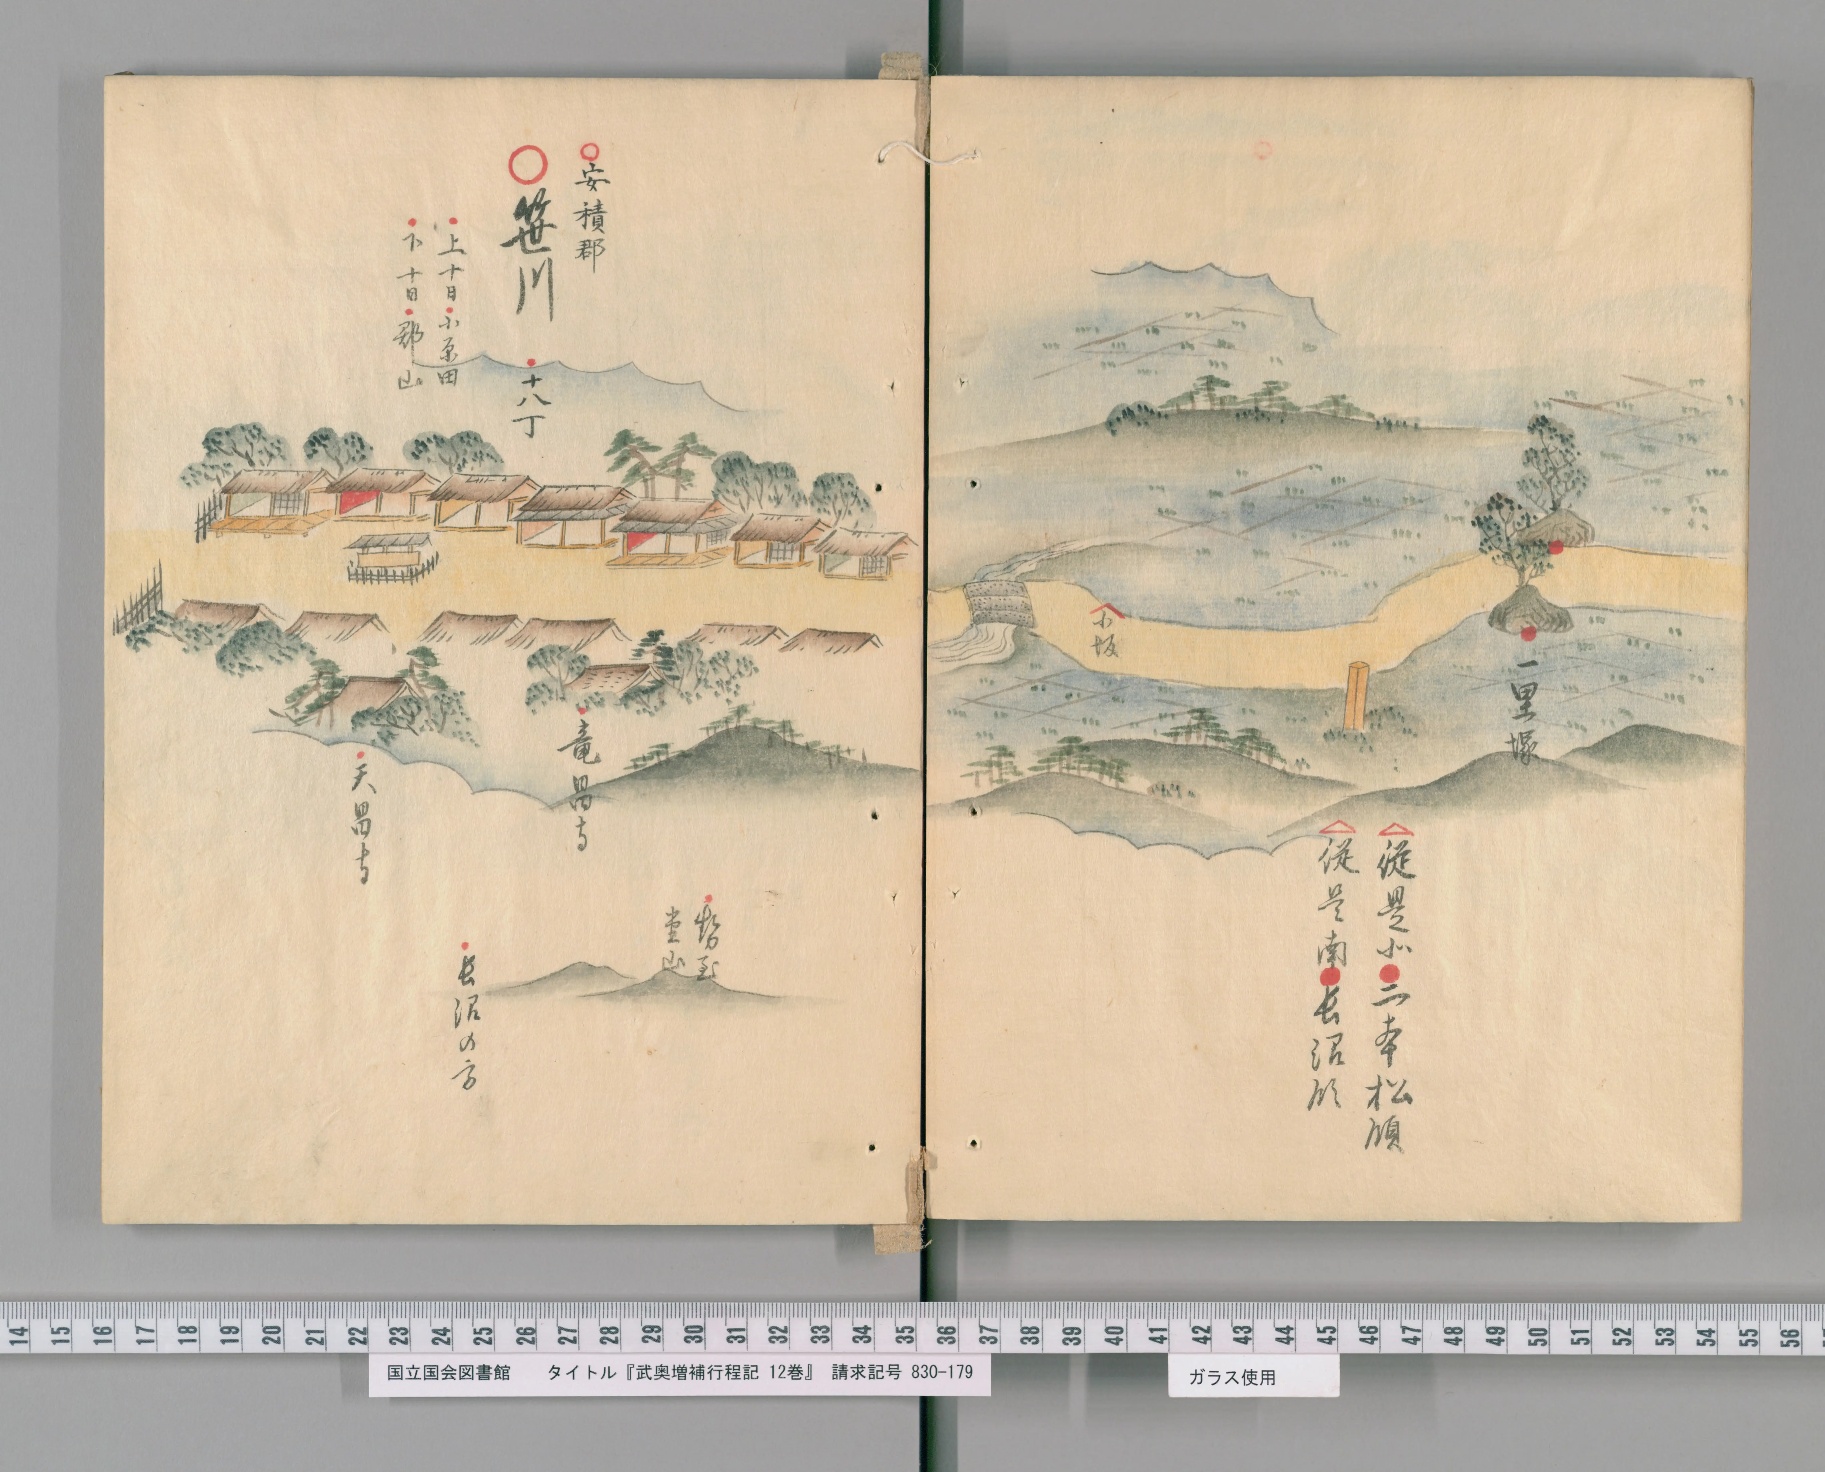 一里塚
従是北二本松領
従是南長沼領
小坂
安積郡
笹川
十八丁
上十日小原田
下十日郡山
竜昌寺
天昌寺
勢至
堂山
長沼の方
14 15 16 17 18 19 20 21 22 23 24 25 26 27 28 29 30 31 32 33 34 35 36 37 38 39 40 41 42 43 44 45 46 47 48 49 50 51 52 53 54 55 56
国立国会図書館 タイトル『武奥増補行程記 12巻』 請求記号 830-179
ガラス使用